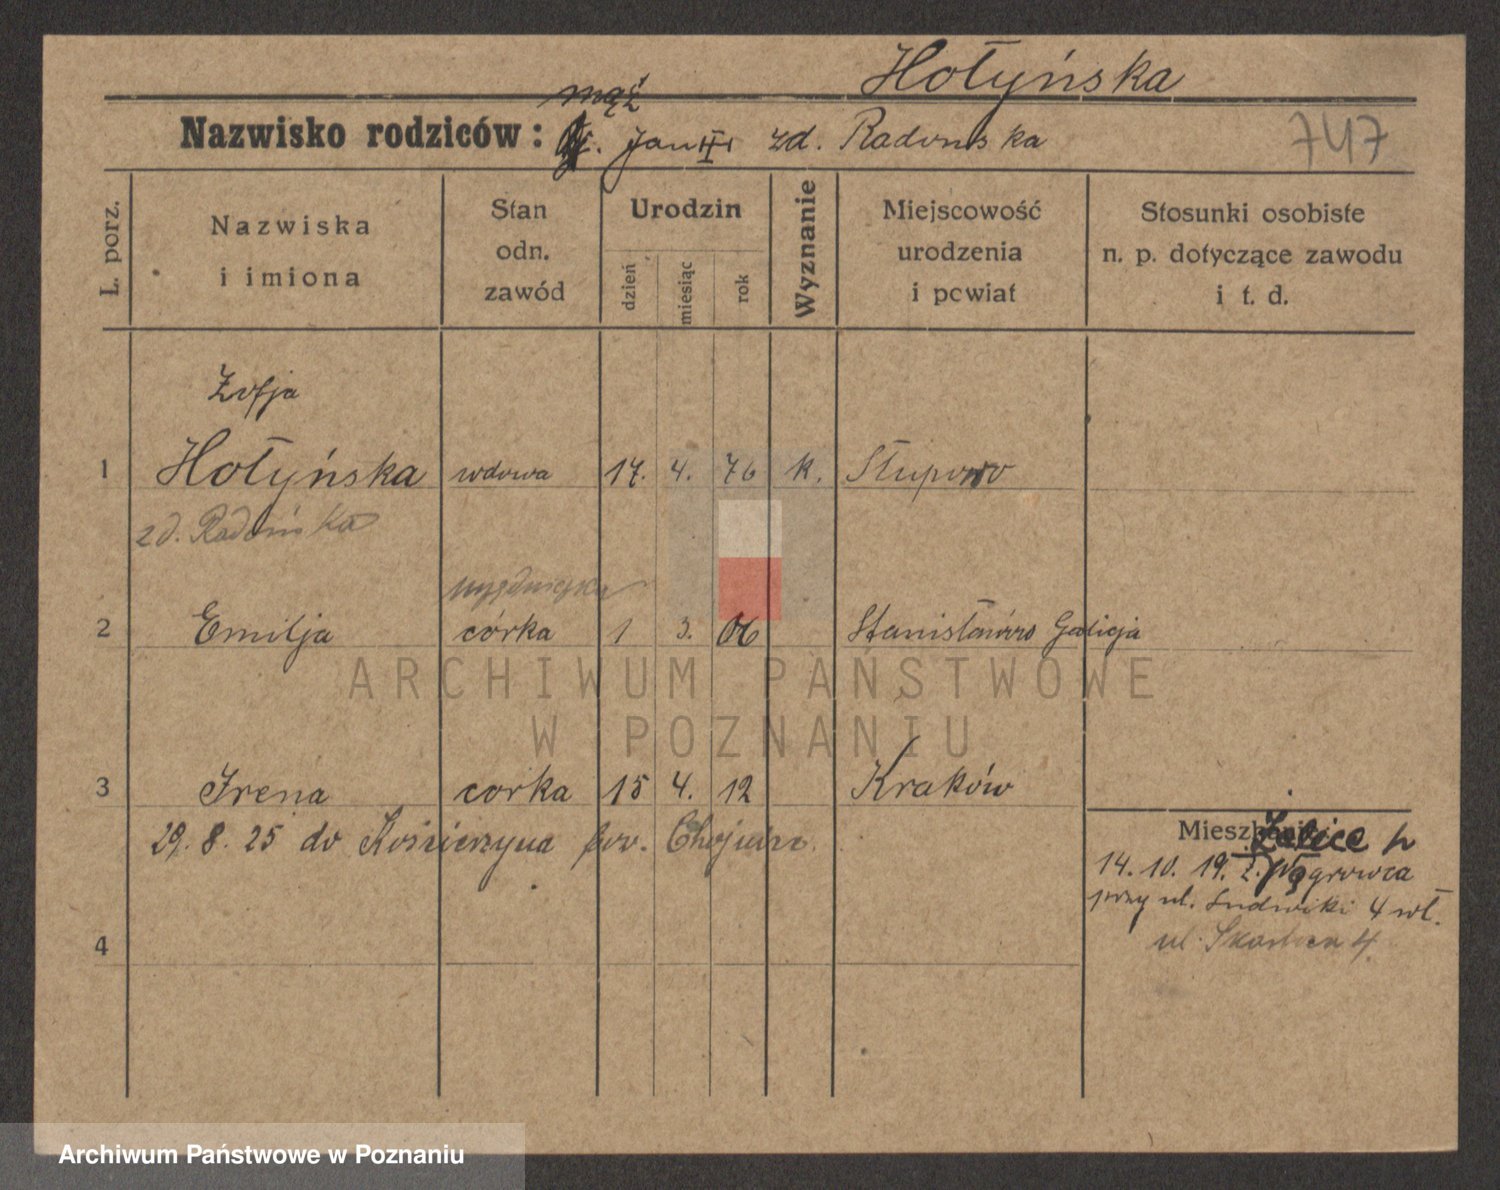 Hołyńska
mąż
Nazwisko rodziców: Jan III zd. Radońska 747
L. porz.
Nazwiska i imiona
Stan odn. zawód
Urodzin
dzień miesiąc rok
Wyznanie
Miejscowość urodzenia i powiat
Stosunki osobiste n. p. dotyczące zawodu i t. d.
Zofja
1 Hołyńska wdowa 17. 4. 76 k. Słupowo
zd. Radońska
urzędniczka
2 Emilja córka 1 3. 06 Stanisławów Galicja
3 Irena corka 15 4. 12 Kraków
29. 8. 25 do pow. Chojnice.
Mieszkanie
14. 10. 19. z Wągrowca
przy ul. Ludwiki 4 wł.
4
ul. 4
ARCHIWUM PAŃSTWOWE
W POZNANIU
Archiwum Państwowe w Poznaniu